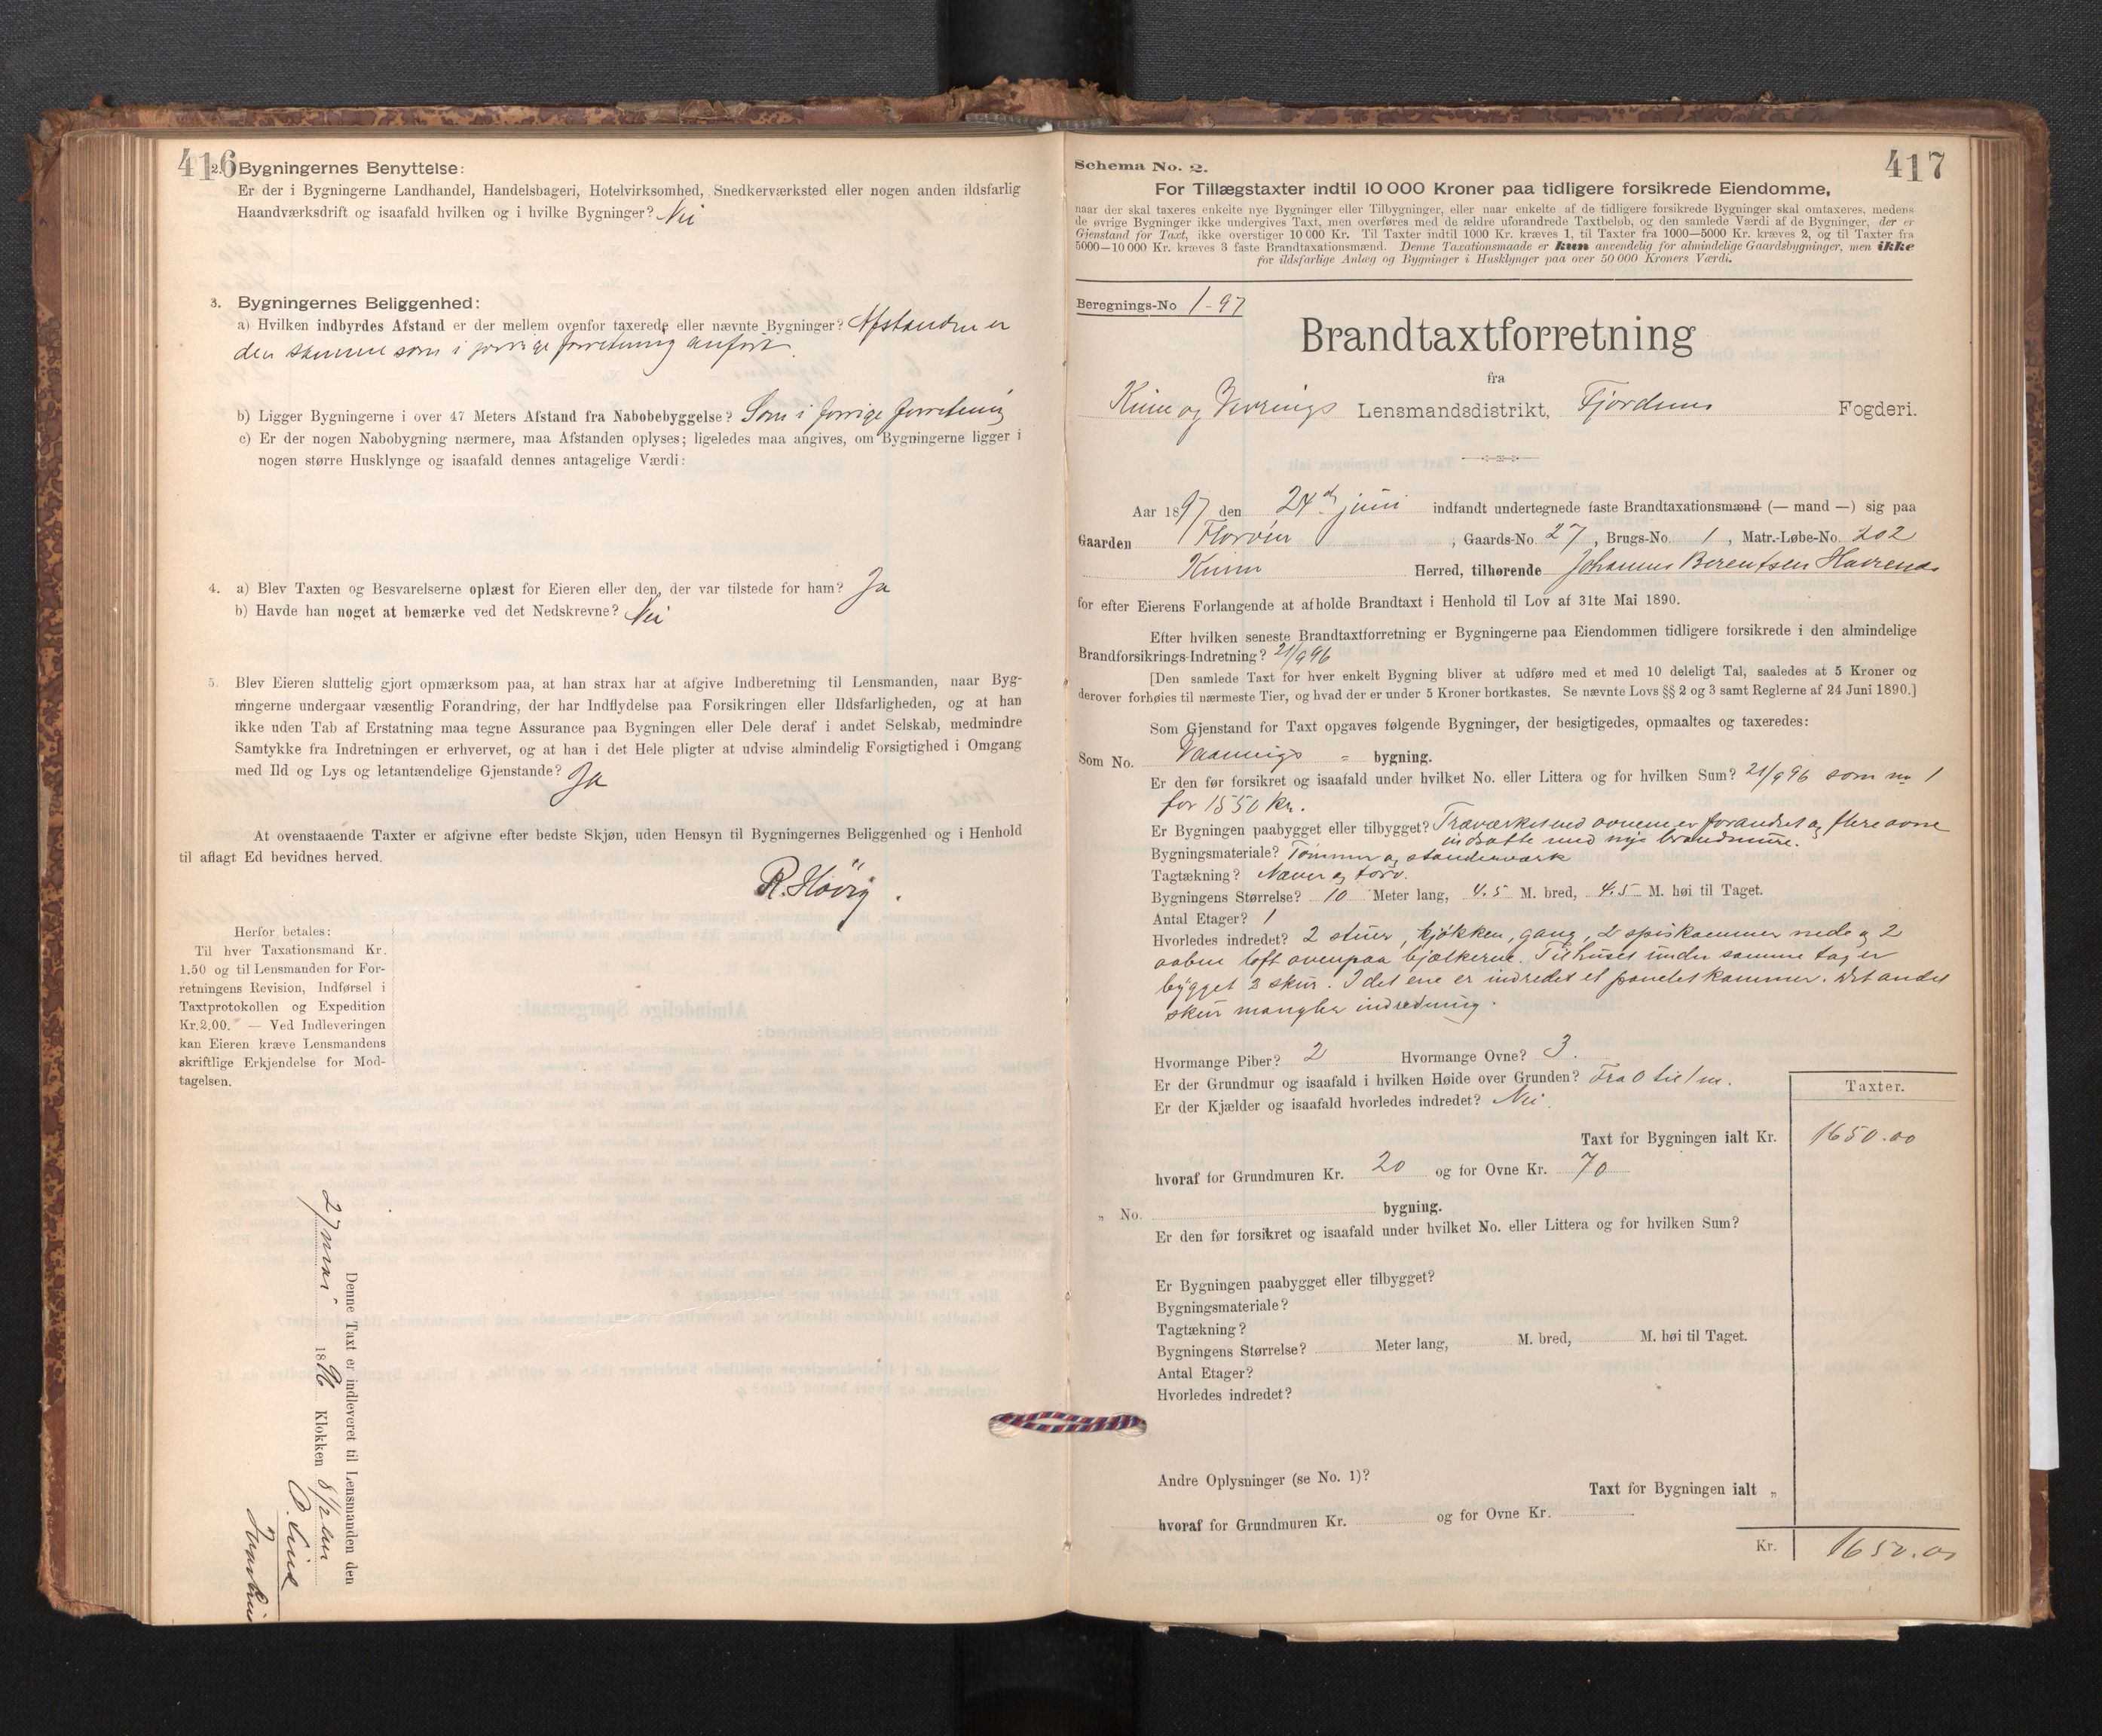 416
2. Bygningernes Benyttelse:
Er der i Bygningerne Landhandel, Handelsbageri, Hotelvirksomhed, Snedkerværksted eller nogen anden ildsfarlig
Haandværksdrift og isaafald hvilken og i hvilke Bygninger? Nei
3. Bygningernes Beliggenhed:
a) Hvilken indbyrdes Afstand er der mellem ovenfor taxerede eller nævnte Bygninger? Afstanden er
den samme som i forrige forretning anført.
b) Ligger Bygningerne i over 47 Meters Afstand fra Nabobebyggelse? Som i forrige forretning
c) Er der nogen Nabobygning nærmere, maa Afstanden oplyses; ligeledes maa angives, om Bygningerne ligger i
nogen større Husklynge og isaafald dennes antagelige Værdi:
4. a) Blev Taxten og Besvarelserne oplæst for Eieren eller den, der var tilstede for ham? Ja
b) Havde han noget at bemærke ved det Nedskrevne? Nei
5. Blev Eieren sluttelig gjort opmærksom paa, at han strax har at afgive Indberetning til Lensmanden, naar Byg-
ningerne undergaar væsentlig Forandring, der har Indflydelse paa Forsikringen eller Ildsfarligheden, og at han
ikke uden Tab af Erstatning maa tegne Assurance paa Bygningen eller Dele deraf i andet Selskab, medmindre
Samtykke fra Indretningen er erhvervet, og at han i det Hele pligter at udvise almindelig Forsigtighed i Omgang
med Ild og Lys og letantændelige Gjenstande? Ja
At ovenstaaende Taxter er afgivne efter bedste Skjøn, uden Hensyn til Bygningernes Beliggenhed og i Henhold
til aflagt Ed bevidnes herved.
R. Høvig.
Herfor betales:
Til hver Taxationsmand Kr.
1.50 og til Lensmanden for For-
retningens Revision, Indførsel i
Taxtprotokollen og Expedition
Kr. 2.00. — Ved Indleveringen
kan Eieren kræve Lensmandens
skriftlige Erkjendelse for Mod-
tagelsen.
Denne Taxt er indleveret til Lensmanden den
27 1896 Klokken 8 1/2
417
Schema No. 2.
For Tillægstaxter indtil 10 000 Kroner paa tidligere forsikrede Eiendomme,
naar der skal taxeres enkelte nye Bygninger eller Tilbygninger, eller naar enkelte af de tidligere forsikrede Bygninger skal omtaxeres, medens
de øvrige Bygninger ikke undergives Taxt, men overføres med de ældre uforandrede Taxtbeløb, og den samlede Værdi af de Bygninger, der er
Gjenstand for Taxt, ikke overstiger 10 000 Kr. Til Taxter indtil 1000 Kr. kræves 1, til Taxter fra 1000—5000 Kr. kræves 2, og til Taxter fra
5000—10 000 Kr. kræves 3 faste Brandtaxationsmænd. Denne Taxationsmaade er kun anvendelig for almindelige Gaardsbygninger, men ikke
for ildsfarlige Anlæg og Bygninger i Husklynger paa over 50 000 Kroners Værdi.
Beregnings-No 1-97
Brandtaxtforretning
fra
Kinn og Vevrings Lensmandsdistrikt, Fjordenes Fogderi.
Aar 1897 den 24d juni indfandt undertegnede faste Brandtaxationsmænd (— mand —) sig paa
Gaarden Florøen, Gaards-No. 27, Brugs-No. 1, Matr.-Løbe-No. 202
Kinn Herred, tilhørende Johannes Berentsen Havrenes
for efter Eierens Forlangende at afholde Brandtaxt i Henhold til Lov af 31te Mai 1890.
Efter hvilken seneste Brandtaxtforretning er Bygningerne paa Eiendommen tidligere forsikrede i den almindelige
Brandforsikrings-Indretning? 21/9 96
[Den samlede Taxt for hver enkelt Bygning bliver at udføre med et med 10 deleligt Tal, saaledes at 5 Kroner og
derover forhøies til nærmeste Tier, og hvad der er under 5 Kroner bortkastes. Se nævnte Lovs §§ 2 og 3 samt Reglerne af 24 Juni 1890.]
Som Gjenstand for Taxt opgaves følgende Bygninger, der besigtigedes, opmaaltes og taxeredes:
Som No. Vaanings = bygning.
Er den før forsikret og isaafald under hvilket No. eller Littera og for hvilken Sum? 21/9 96 som no 1
for 1550 kr.
Er Bygningen paabygget eller tilbygget? Træværket ved ovnene er forandret og flere ovne
indsatte med nye brandmure.
Bygningsmateriale? Tømmer og standerværk
Tagtækning? Næver og torv.
Bygningens Størrelse? 10 Meter lang, 4.5 M. bred, 4.5 M. høi til Taget.
Antal Etager? 1
Hvorledes indredet? 2 stuer, kjøkken, gang, 2 spiskammer nede og 2
aaben loft ovenpaa bjælkerne. Til huset under samme tag er
bygget 2 skur. I det ene er indredet et panelet kammer. Det andet
skur mangler indredning.
Hvormange Piber? 2 Hvormange Ovne? 3.
Er der Grundmur og isaafald i hvilken Høide over Grunden? Fra 0 til 1 m.
Er der Kjælder og isaafald hvorledes indredet? Nei.
Taxter.
Taxt for Bygningen ialt Kr. 1650.00
hvoraf for Grundmuren Kr. 20 og for Ovne Kr. 70
„ No. bygning.
Er den før forsikret og isaafald under hvilket No. eller Littera og for hvilken Sum?
Er Bygningen paabygget eller tilbygget?
Bygningsmateriale?
Tagtækning?
Bygningens Størrelse? Meter lang, M. bred, M. høi til Taget.
Antal Etager?
Hvorledes indredet?
Andre Oplysninger (se No. 1)?
Taxt for Bygningen ialt „
hvoraf for Grundmuren Kr. og for Ovne Kr.
Kr. 1650.00